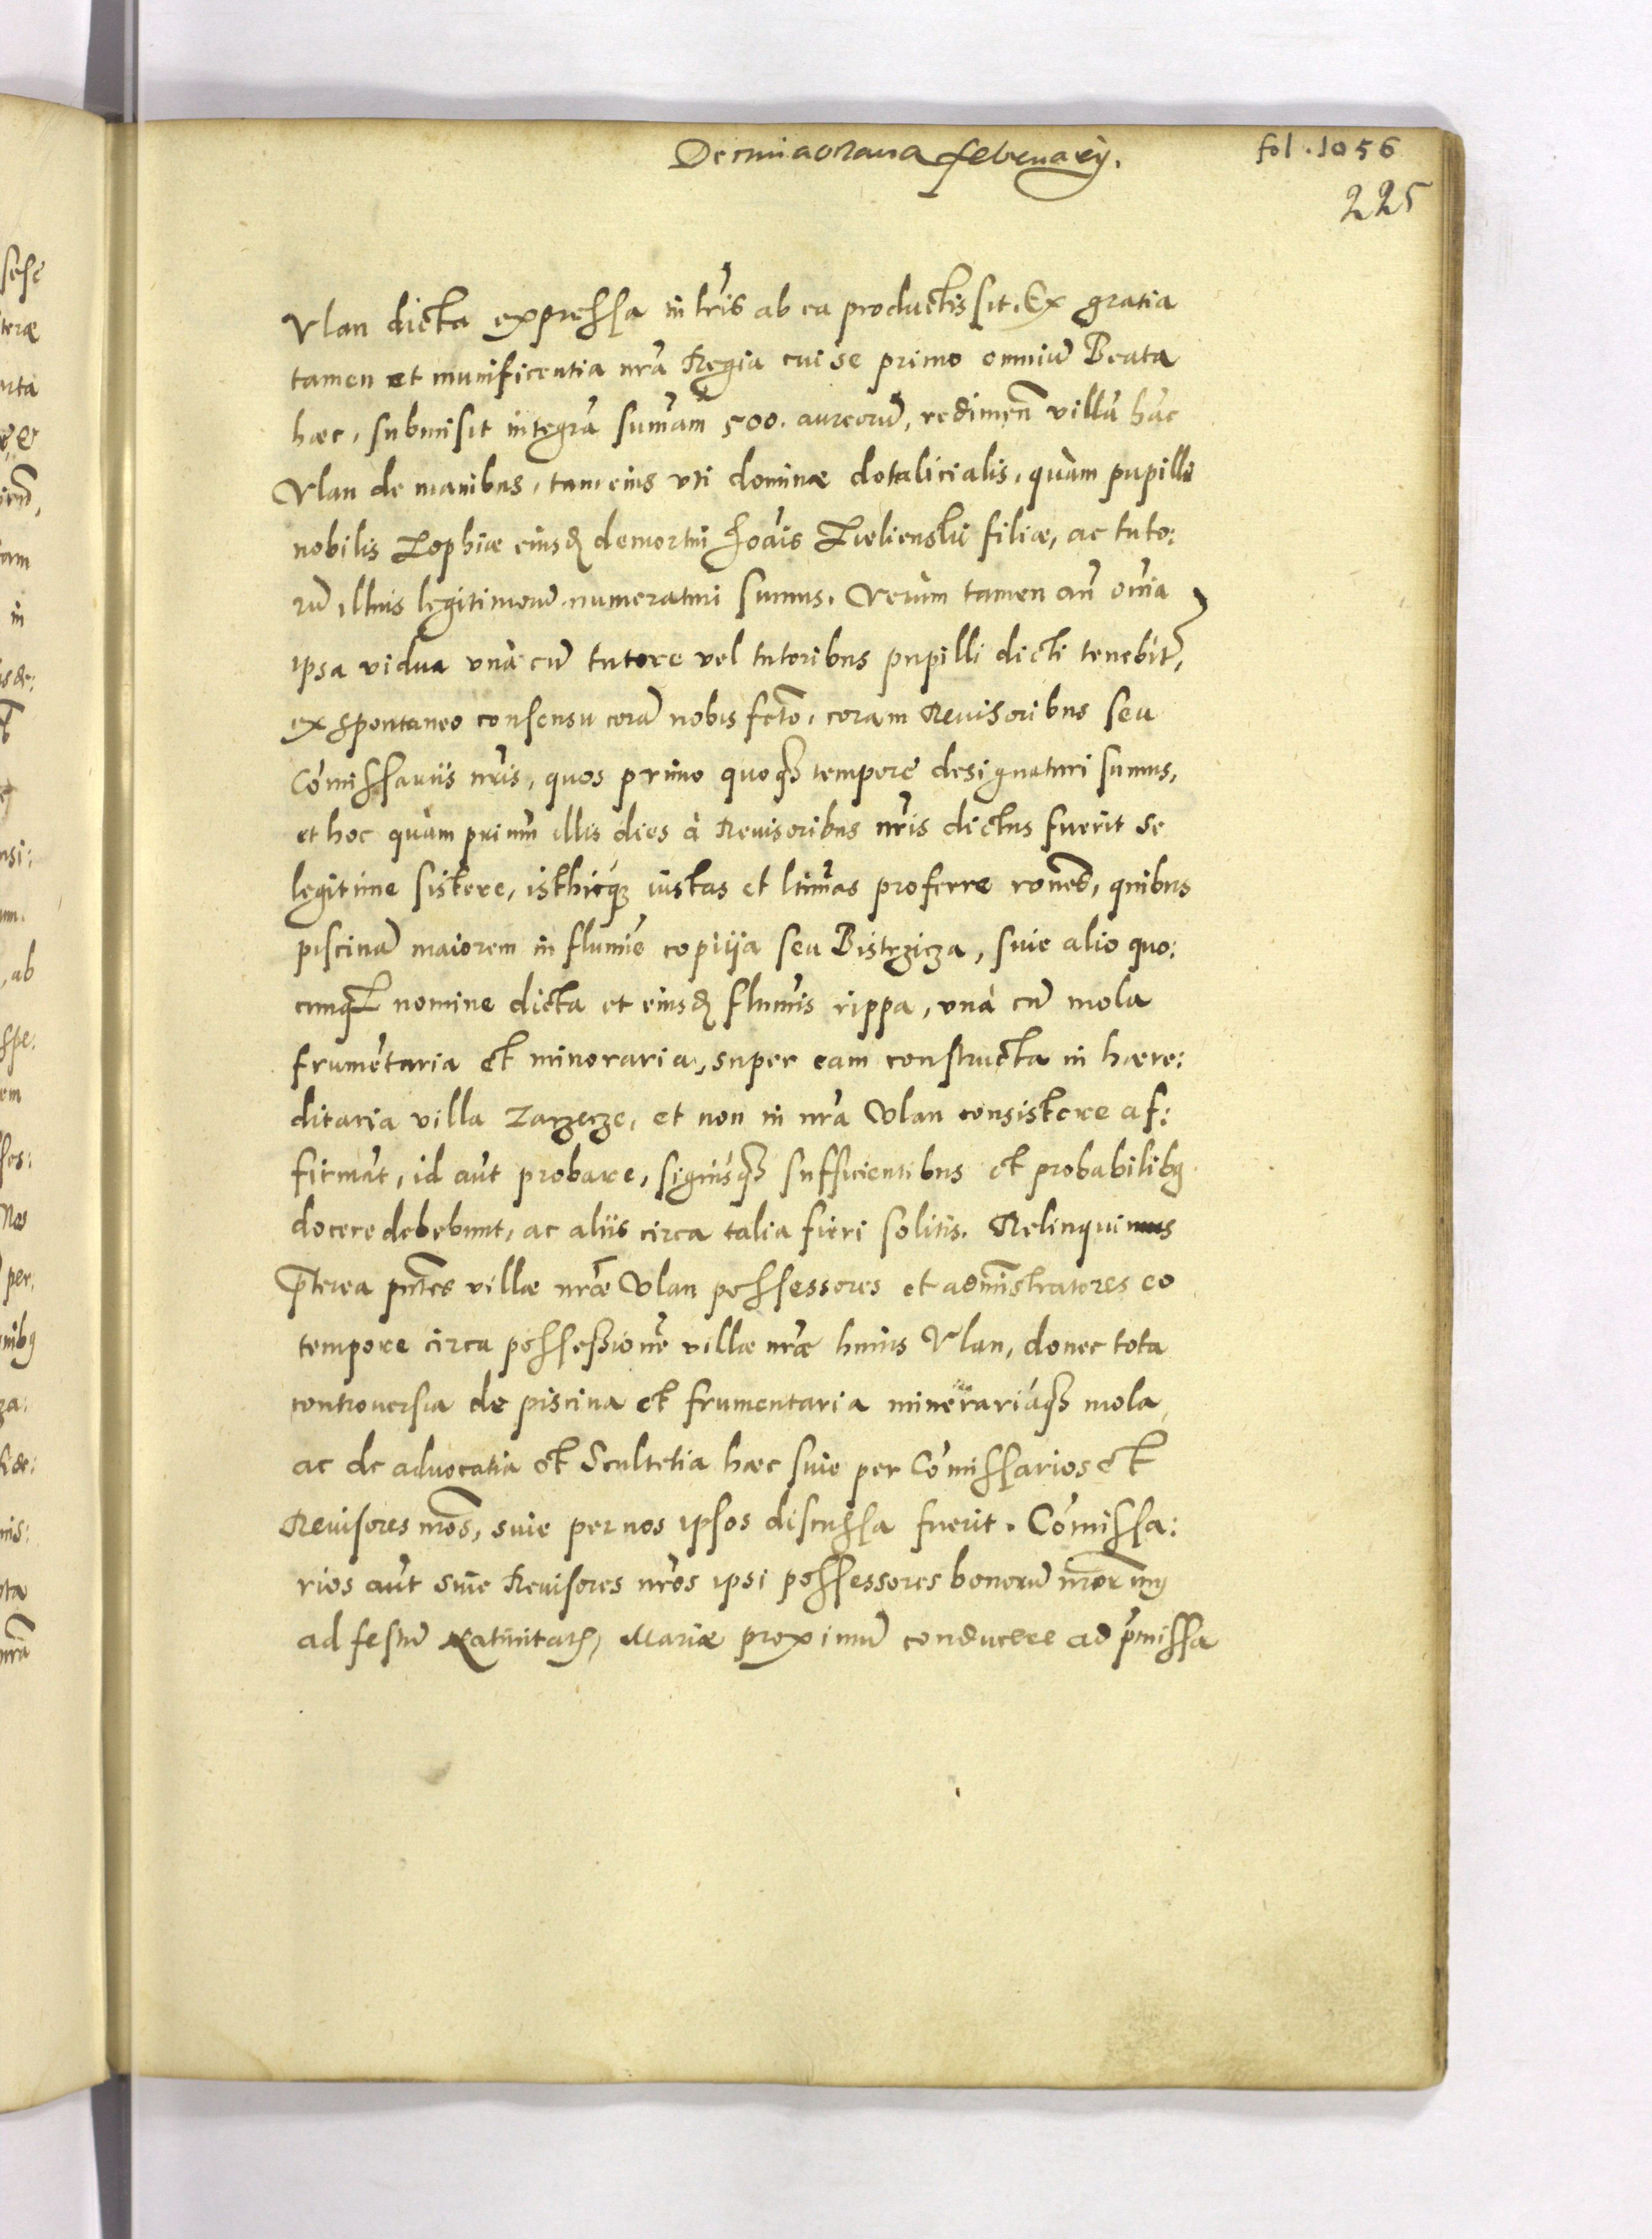 Decimaoctaua february.
fol. 1056
225
Vlan dicta expressa in lr̃is ab ea productis sit. Ex gratia
tamen et munificentia nr̃a Regia cui se primo omniũ Beata
hæc, submisit integrã sum̃am 500. aureorũ, redimen̄ villã hãc
Vlan de manibus, tam eius vti dominæ dotalicialis, quàm pupilli
nobilis Zophiæ eiusđ demortui Joãis Zielienskii filiæ, ac tuto:
rũ illius legitimorũ numeraturi sumus. Verùm tamen an̄ om̃ia
ipsa vidua vnà cũ tutore vel tutoribus pupilli dicti tenebit̃,
ex spontaneo consensu corã nobis fcto, coram Reuisoribus seu
Com̃issariis nr̃is, quos primo quoq3 tempore designaturi sumus,
et hoc quàm primũ illis dies à Reuisoribus nr̃is dictus fuerit se
legitime sistere, isthicq3 iustas et ltimas proferre ron̄es, quibus
piscinã maiorem in flumĩe copiija seu Bistrzicza, siue alio quo:
cunq3 nomine dicta et eiusđ flumĩs rippa, vnà cũ mola
frumẽtaria et minoraria, super eam constructa in hære:
ditaria villa Zarzecze, et non in nr̃a Vlan consistere af:
firmãt, id aũt probare, signisq3 sufficientibus et probabilibꝯ
docere debebunt, ac aliis circa talia fieri solitis. Relinquimus
p̃terea pñtes villæ nr̃æ Vlan possessores et adm̃istratores eo
tempore circa possessionẽ villæ nr̃æ huius Vlan, donec tota
controuersia de piscina et frumentaria minerariáq3 mola,
ac de aduocatia et Scultetia hæc siue per Com̃issarios et
Reuisores nr̃os, siue per nos ipsos discussa fuerit. Com̃issa:
rios aũt siue Reuisores nr̃os ipsi possessores bonorũ nr̃orum
ad festũ Natiuitatis Mariæ proximũ conducere ad p̃missa